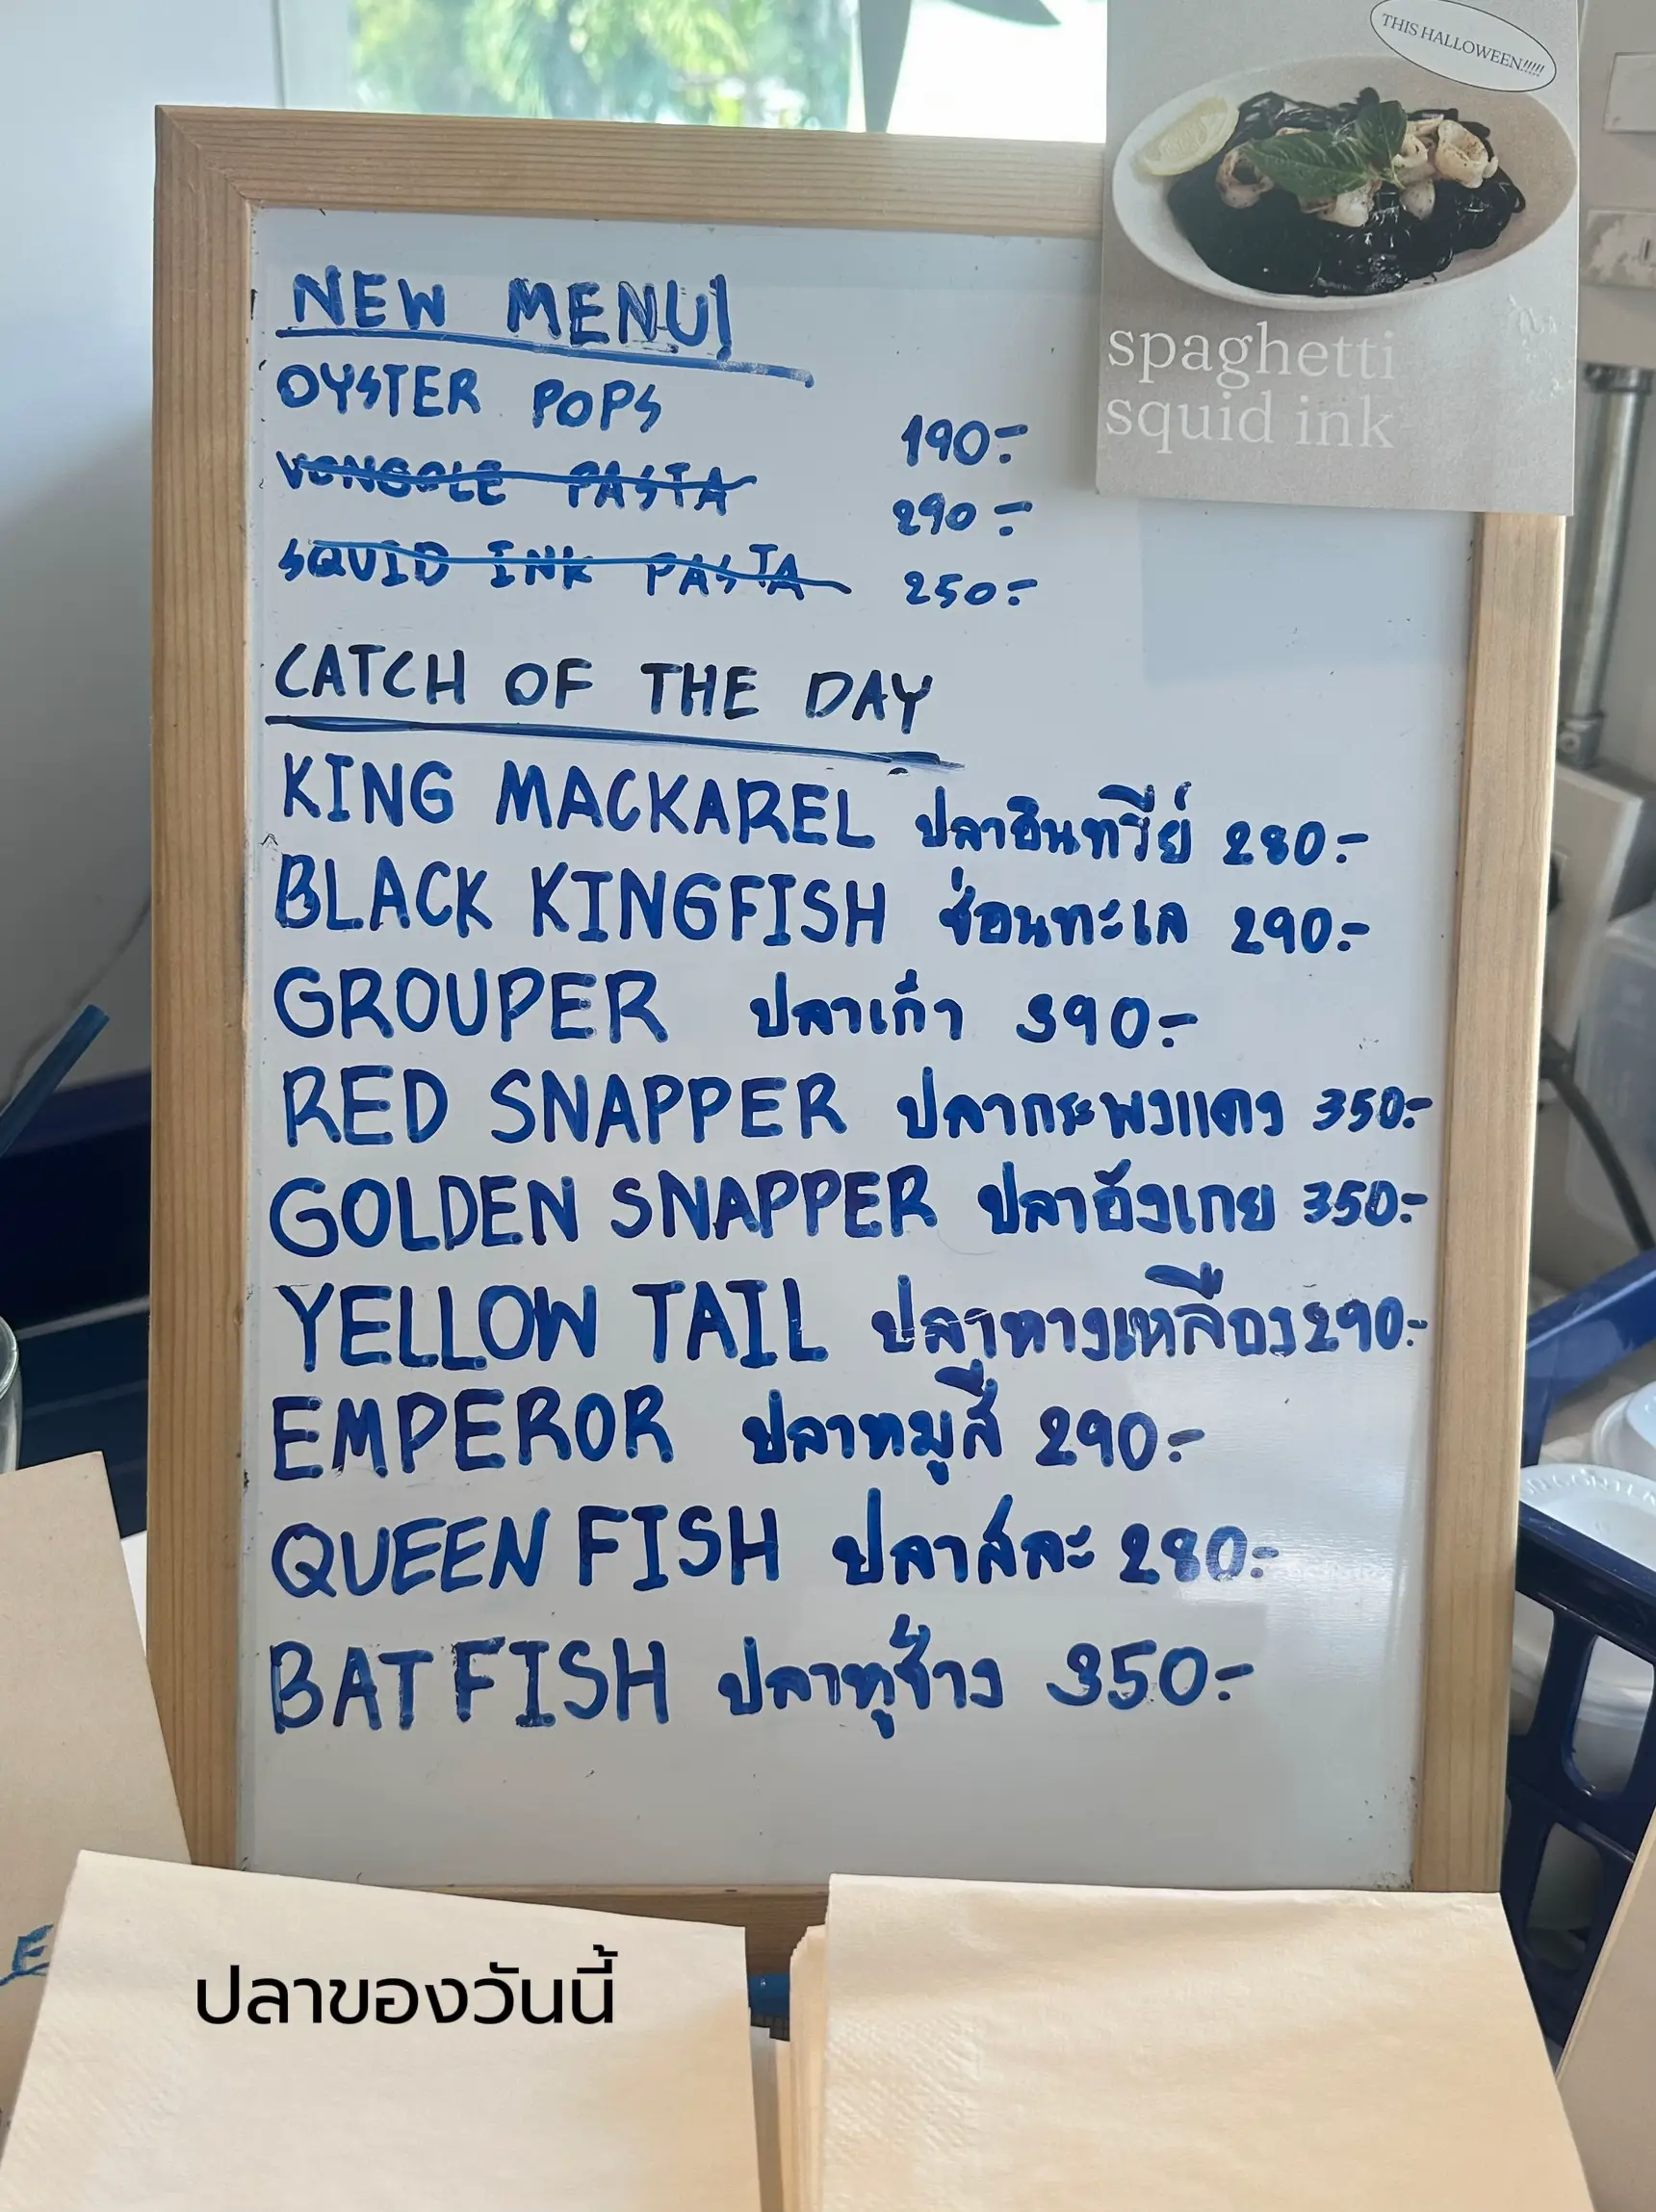 THIS HALLOWEEN!!!!!
spaghetti
squid ink
NEW MENU!
OYSTER POPS 190.-
VONGOLE PASTA 290.-
SQUID INK PASTA 250.-
CATCH OF THE DAY
KING MACKAREL ปลาอินทรีย์ 280.-
BLACK KINGFISH ช่อนทะเล 290.-
GROUPER ปลาเก๋า 390.-
RED SNAPPER ปลากระพงแดง 350.-
GOLDEN SNAPPER ปลาอังเกย 350.-
YELLOW TAIL ปลาหางเหลือง 290.-
EMPEROR ปลาหมูสี 290.-
QUEEN FISH ปลาสละ 280.-
BATFISH ปลาหูช้าง 350.-
ปลาของวันนี้